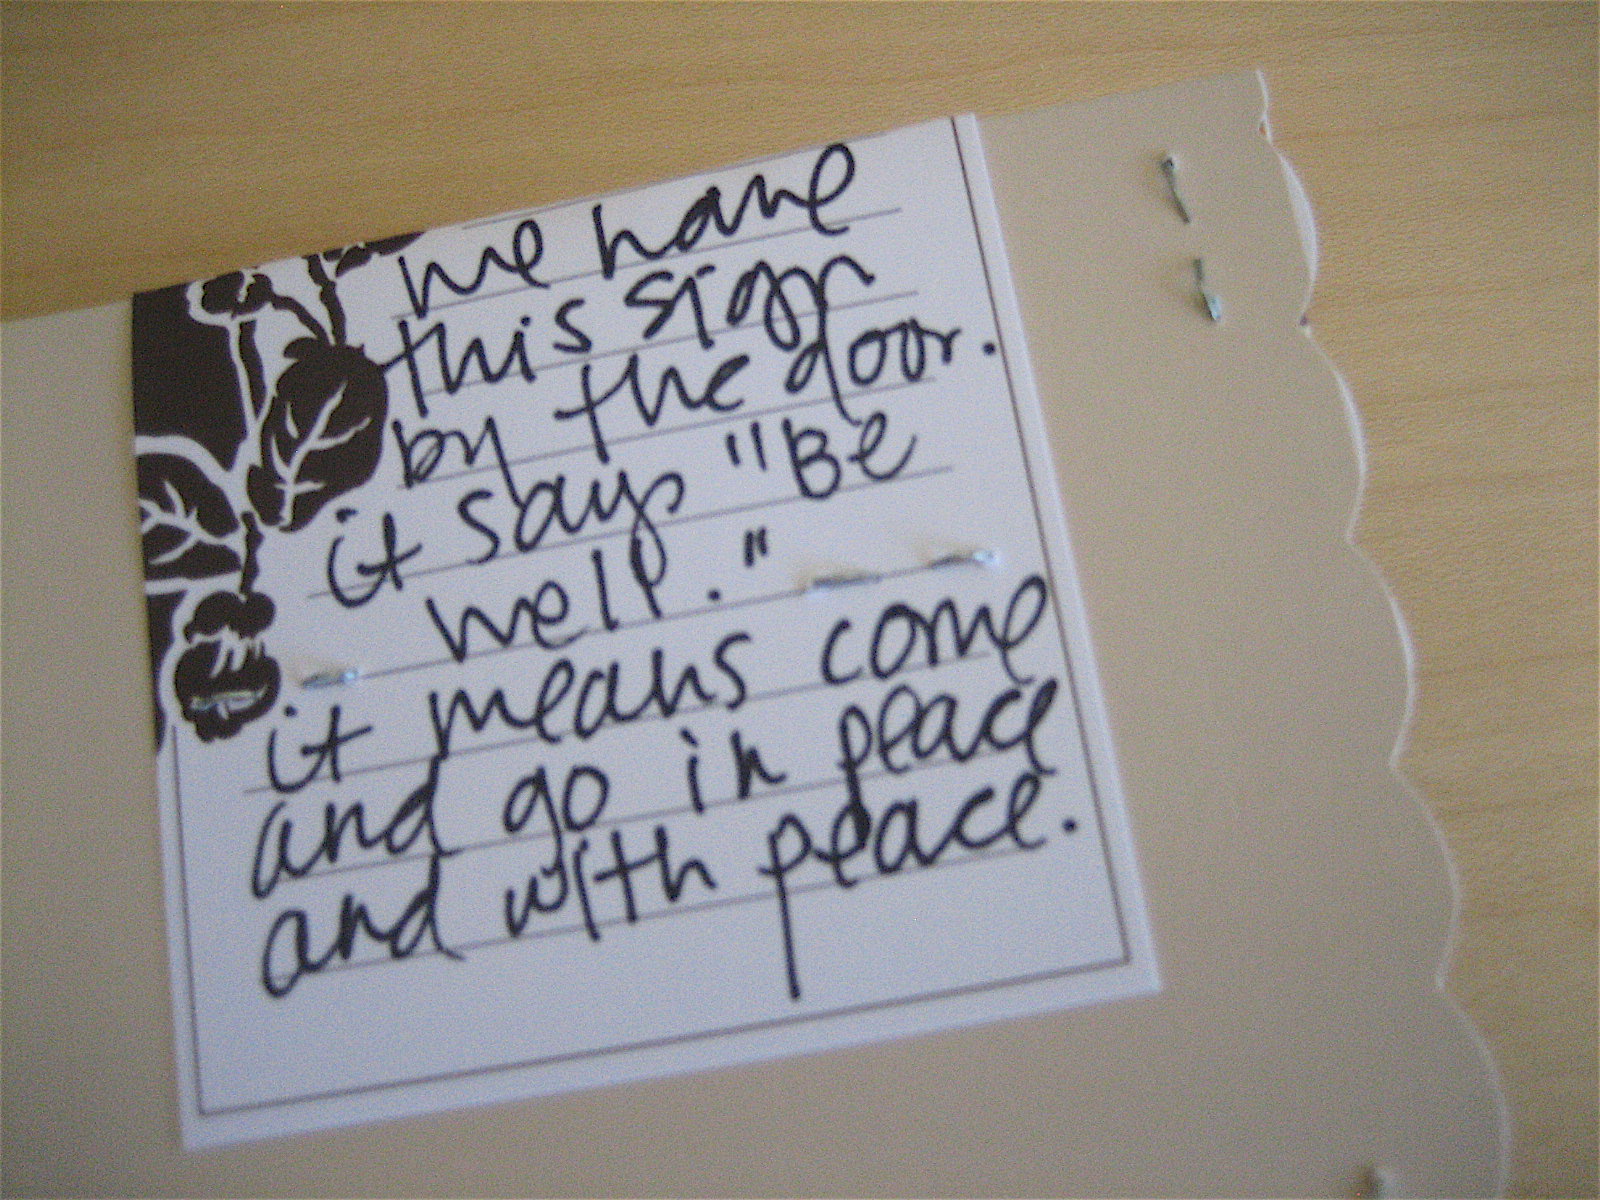 we have
this sign
by the door.
it says "Be
well."
it means come
and go in peace
and with peace.